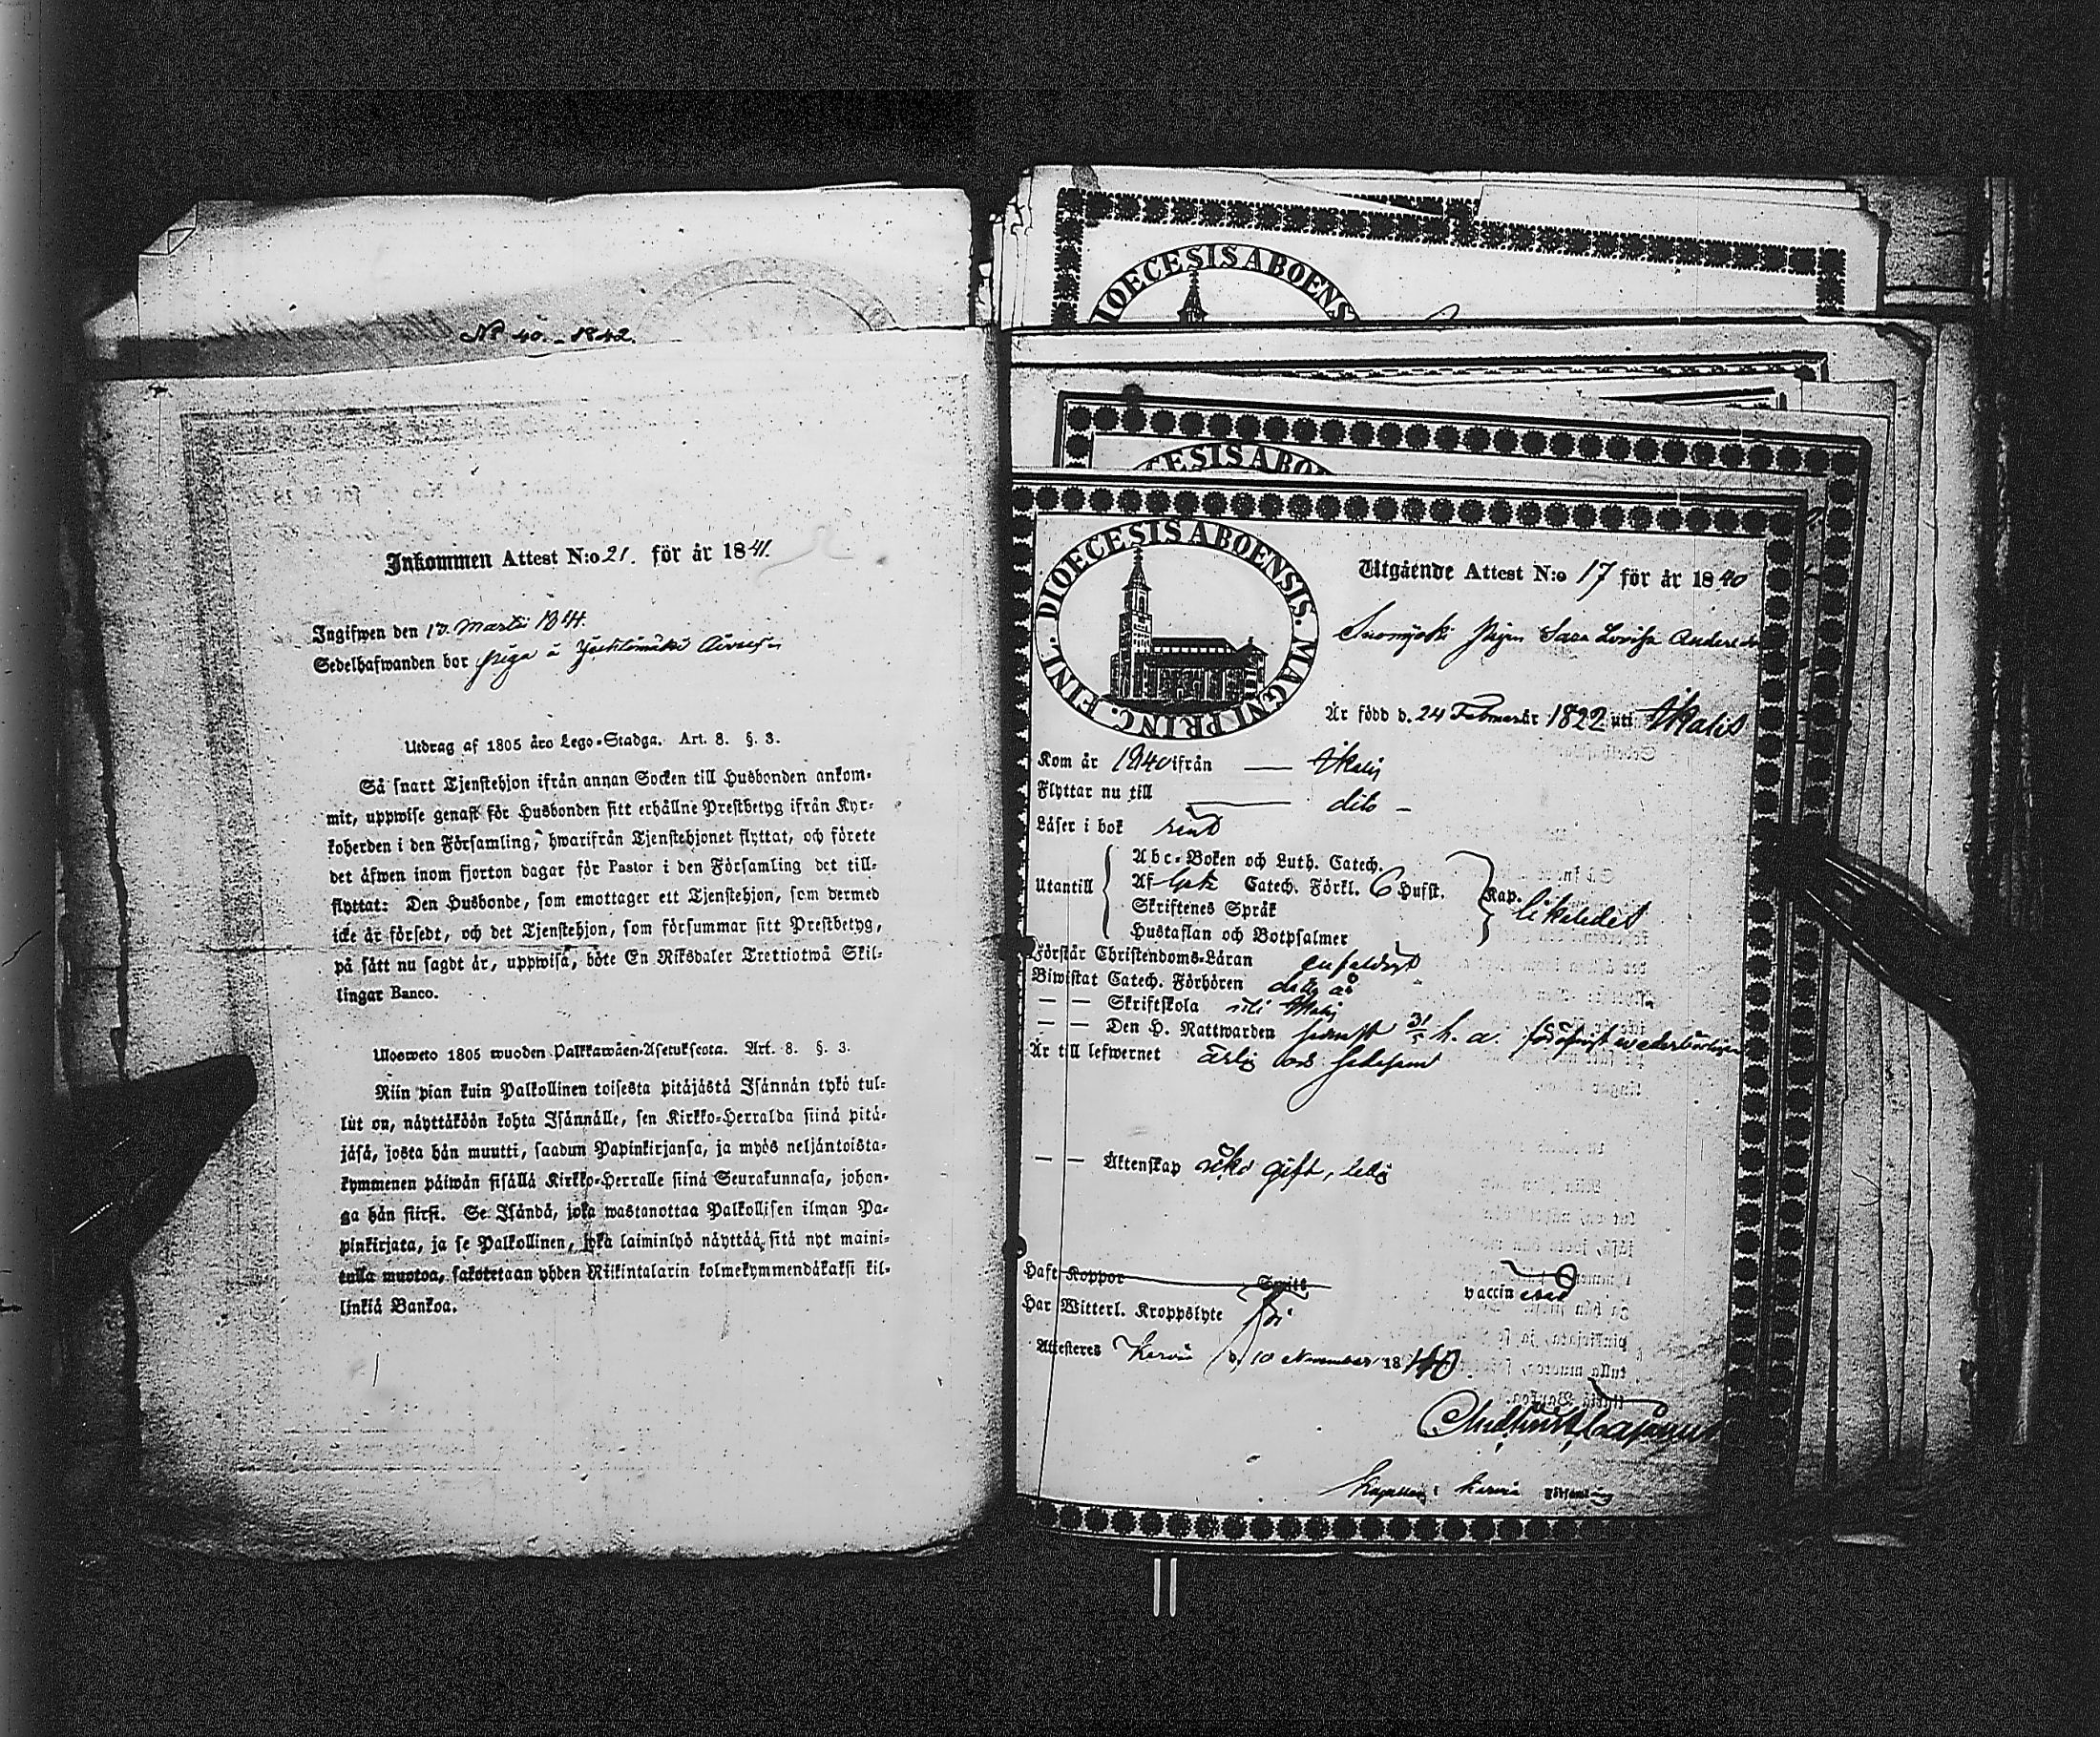 N:o 40. - 1842.
Inkommen Attest N:o 21. för år 1841.
Ingifwen den 13. Martii 1841.
Sedelhafwanden bor piga å
Utdrag af 1805 åro Lego-Stadga. Art. 8. §. 3.
Så snart Tjenstehjon ifrån annan Socken till Husbonden ankom-
mit, uppwise genast för Husbonden sitt erhållne Prestbetyg ifrån Kyr-
koherden i den Församling, hwarifrån Tjenstehjonet flyttat, och förete
det åfwen inom fjorton dagar för Pastor i den Församling det till-
flyttat: Den Husbonde, som emottager ett Tjenstehjon, som dermed
icke år försedt, och det Tjenstehjon, som försummar sitt Prestbetyg,
på sått nu sagdt år, uppwisa, böte En Riksdaler Trettiotwå Skil-
lingar Banco.
Ulosweto 1805 wuoden Palkkawåen-Asetuksesta. Art. 8. §. 3.
Niin pian kuin Palkollinen toisesta pitåjåstå Isånnån tykö tul-
lut on, nåyttåköön kohta Isånnålle, sen Kirkko-Herralda siinå pitå-
jåså, josta hån muutti, saadun Papinkirjansa, ja myös neljåntoista-
kymmenen påiwån sisållå Kirkko-Herralle siinå Seurakunnasa, johon-
ga hån siirsi. Se Isåndå, joka wastanottaa Palkollisen ilman Pa-
pinkirjata, ja se Palkollinen, joka laiminlyö nåyttåå sitå nyt maini-
tulla muotoa, sakotetaan yhden Riikintalarin kolmekymmendåkaksi kil-
linkiå Bankoa.
DIOECESIS ABOENS
CESIS ABO
DIOECESIS ABOENSIS. MAGNI PRINC. FINL.
Utgående Attest N:o 17 för år 1840
Pigan Sara Lovisa Anders
Är född d. 24 Februar 1822 uti Ikalis
Kom år 1840 ifrån — Ikalis
Flyttar nu till — dito –
Låser i bok rent
Utantill
Abc-Boken och Luth. Catech.
Af Catech. Förkl. 6 Hufst. Kap.
Skriftenes Språk likaledes
Hustaflan och Botpsalmer
Förstår Christendoms-Låran enfaldigt
Biwistat Catech. Förhören detta år
— — Skriftskola uti Ikalis
— — Den H. Nattwarden senast 31/5 h. a.
År till lefwernet ärlig och
— — Äktenskap icke gift, ledig
Haft Koppor Smitt vaccinerad
Har Witterl. Kroppslyte
Attesteres Kervia d. 10 November 1840
Kapellan i Kervia Församling